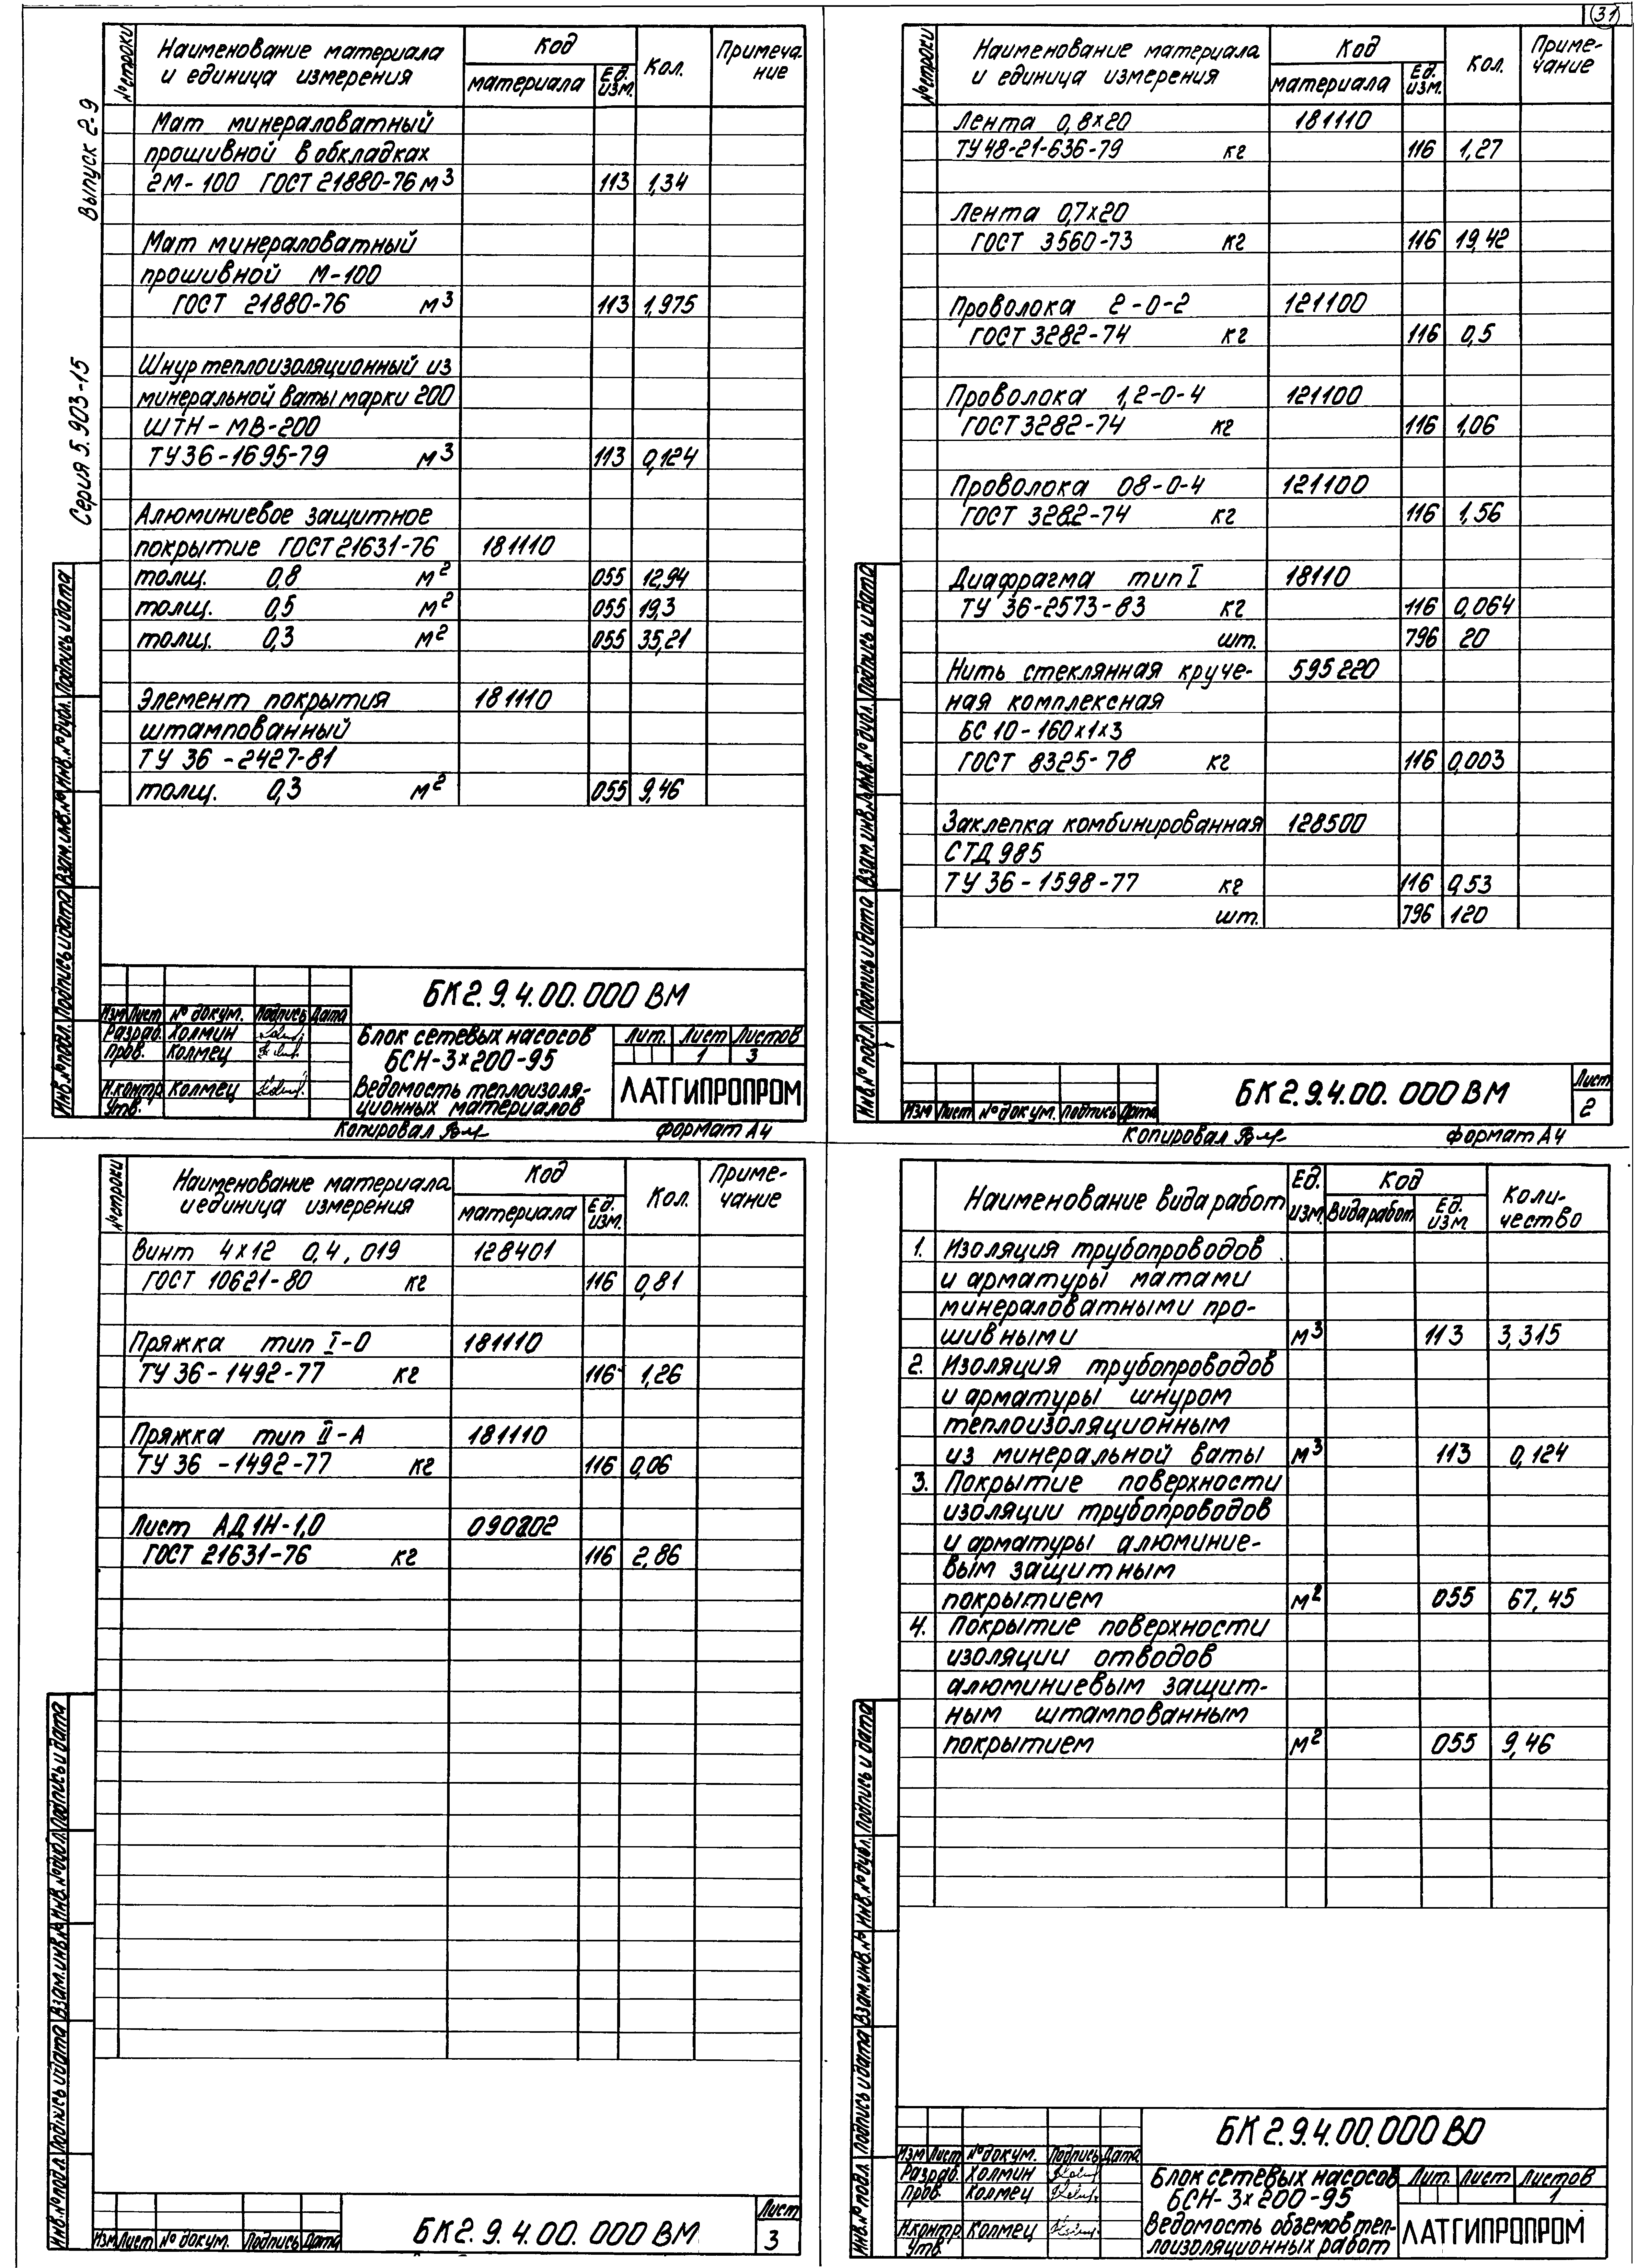 31
Выпуск 2-9
Серия 5.903-15
№ строки
Наименование материала
и единица измерения
Код
материала
Ед.
изм.
Кол.
Примеча-
ние
Мат минераловатный
прошивной в обкладках
2М-100 ГОСТ 21880-76 м³ 113 1,34
Мат минераловатный
прошивной М-100
ГОСТ 21880-76 м³ 113 1,975
Шнур теплоизоляционный из
минеральной ваты марки 200
ШТН-МВ-200
ТУ 36-1695-79 м³ 113 0,124
Алюминиевое защитное
покрытие ГОСТ 21631-76 181110
толщ. 0,8 м² 055 12,94
толщ. 0,5 м² 055 19,3
толщ. 0,3 м² 055 35,21
Элемент покрытия 181110
штампованный
ТУ 36-2427-81
толщ. 0,3 м² 055 9,46
Инв.№подл. Подпись и дата Взам.инв.№ Инв.№дубл. Подпись и дата
БК2.9.4.00.000 ВМ
Изм Лист № докум. Подпись Дата
Разраб. Холмин
Пров. Колмец
Н.контр Колмец
Утв.
Блок сетевых насосов
БСН-3×200-95
Ведомость теплоизоля-
ционных материалов
Лит. Лист Листов
1 3
ЛАТГИПРОПРОМ
Копировал
формат А4
№ строки
Наименование материала
и единица измерения
Код
материала
Ед.
изм.
Кол.
Приме-
чание
Лента 0,8×20 181110
ТУ 48-21-636-79 кг 116 1,27
Лента 0,7×20
ГОСТ 3560-73 кг 116 19,42
Проволока 2-0-2 121100
ГОСТ 3282-74 кг 116 0,5
Проволока 1,2-0-4 121100
ГОСТ 3282-74 кг 116 1,06
Проволока 08-0-4 121100
ГОСТ 3282-74 кг 116 1,56
Диафрагма тип I 18110
ТУ 36-2573-83 кг 116 0,064
шт. 796 20
Нить стеклянная круче- 595220
ная комплексная
БС 10-160×1×3
ГОСТ 8325-78 кг 116 0,003
Заклепка комбинированная 128500
СТД 985
ТУ 36-1598-77 кг 116 0,53
шт. 796 120
Инв.№подл. Подпись и дата Взам.инв.№ Инв.№дубл. Подпись и дата
Изм Лист № докум. Подпись Дата
БК2.9.4.00.000 ВМ
Лист
2
Копировал
формат А4
№ строки
Наименование материала
и единица измерения
Код
материала
Ед.
изм.
Кол.
Приме-
чание
Винт 4×12 0,4, 019 128401
ГОСТ 10621-80 кг 116 0,81
Пряжка тип I-О 181110
ТУ 36-1492-77 кг 116 1,26
Пряжка тип II-А 181110
ТУ 36-1492-77 кг 116 0,06
Лист АД1Н-1,0
ГОСТ 21631-76 кг 116 2,86
Инв.№подл. Подпись и дата Взам.инв.№ Инв.№дубл. Подпись и дата
Изм Лист № докум. Подпись Дата
БК2.9.4.00.000 ВМ
Лист
3
Наименование вида работ
Ед.
изм.
Код
Вида работ
Ед.
изм.
Коли-
чество
1. Изоляция трубопроводов
и арматуры матами
минераловатными про-
шивными м³ 113 3,315
2. Изоляция трубопроводов
и арматуры шнуром
теплоизоляционным
из минеральной ваты м³ 113 0,124
3. Покрытие поверхности
изоляции трубопроводов
и арматуры алюминие-
вым защитным
покрытием м² 055 67,45
4. Покрытие поверхности
изоляции отводов
алюминиевым защит-
ным штампованным
покрытием м² 055 9,46
Инв.№подл. Подпись и дата Взам.инв.№ Инв.№дубл. Подпись и дата
БК2.9.4.00.000 ВО
Изм Лист № докум. Подпись Дата
Разраб. Холмин
Пров. Колмец
Н.контр Колмец
Утв.
Блок сетевых насосов
БСН-3×200-95
Ведомость объемов теп-
лоизоляционных работ
Лит. Лист Листов
1
ЛАТГИПРОПРОМ